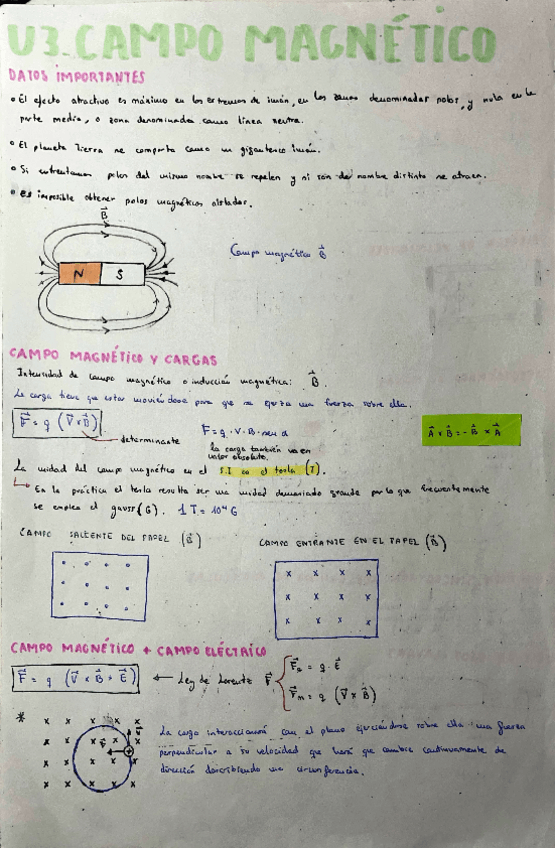 U3. CAMPO MAGNÉTICO
DATOS IMPORTANTES
• El efecto atractivo es máximo en los extremos de imán, en las zonas denominadas polos, y nula en la
parte media, o zona denominada como línea neutra.
• El planeta Tierra se comporta como un gigantesco imán.
• Si enfrentamos polos del mismo nombre se repelen y si son de nombre distinto se atraen.
• Es imposible obtener polos magnéticos aislados.
B⃗
N S
Campo magnético B⃗
CAMPO MAGNÉTICO Y CARGAS
Intensidad de campo magnético o inducción magnética: B⃗.
La carga tiene que estar moviéndose para que se ejerza una fuerza sobre ella.
F⃗ = q (V⃗ x B⃗)
determinante
F = q · V · B · sen α
la carga también va en
valor absoluto.
A⃗ x B⃗ = - B⃗ x A⃗
La unidad del campo magnético en el S.I es el tesla (T).
En la práctica el tesla resulta ser una unidad demasiado grande por lo que frecuentemente
se emplea el gauss (G). 1 T = 10⁴ G
CAMPO SALIENTE DEL PAPEL (B⃗)
CAMPO ENTRANTE EN EL PAPEL (B⃗)
x x x x
x x x x
x x x x
CAMPO MAGNÉTICO + CAMPO ELÉCTRICO
F⃗ = q (V⃗ x B⃗ + E⃗)
← Ley de Lorentz F⃗
F⃗e = q · E⃗
F⃗m = q (V⃗ x B⃗)
*
La carga interaccionará con el plano ejerciéndose sobre ella una fuerza
perpendicular a su velocidad que hará que cambie continuamente de
dirección describiendo una circunferencia.